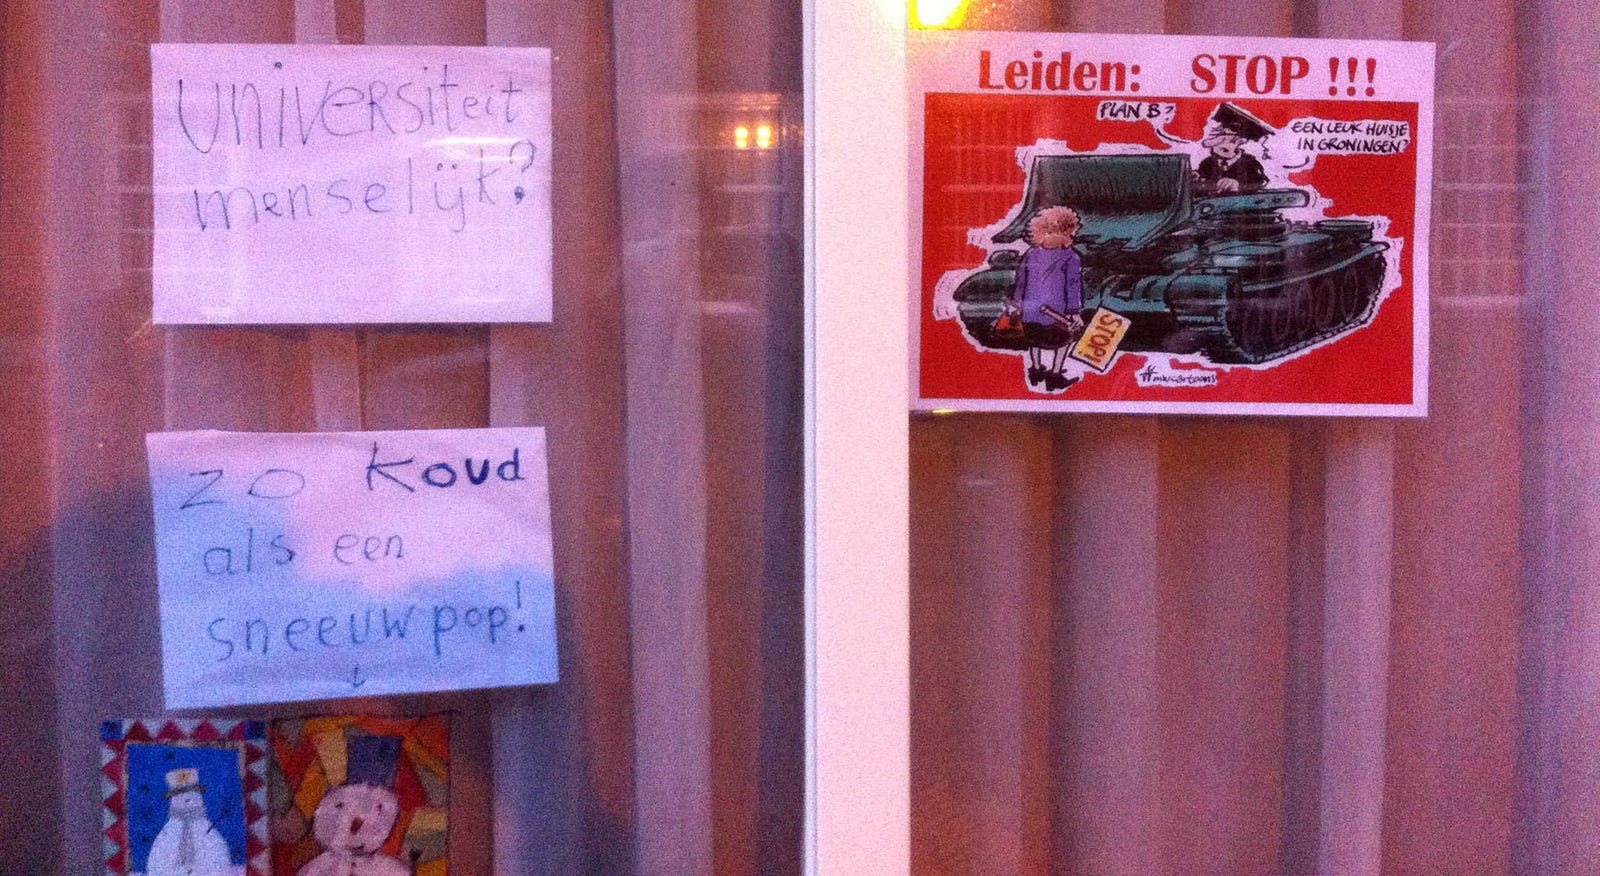 Universiteit
menselijk?
zo koud
als een
sneeuwpop!
Leiden: STOP !!!
PLAN B?
EEN LEUK HUISJE
IN GRONINGEN?
STOP!
#mwcartoons